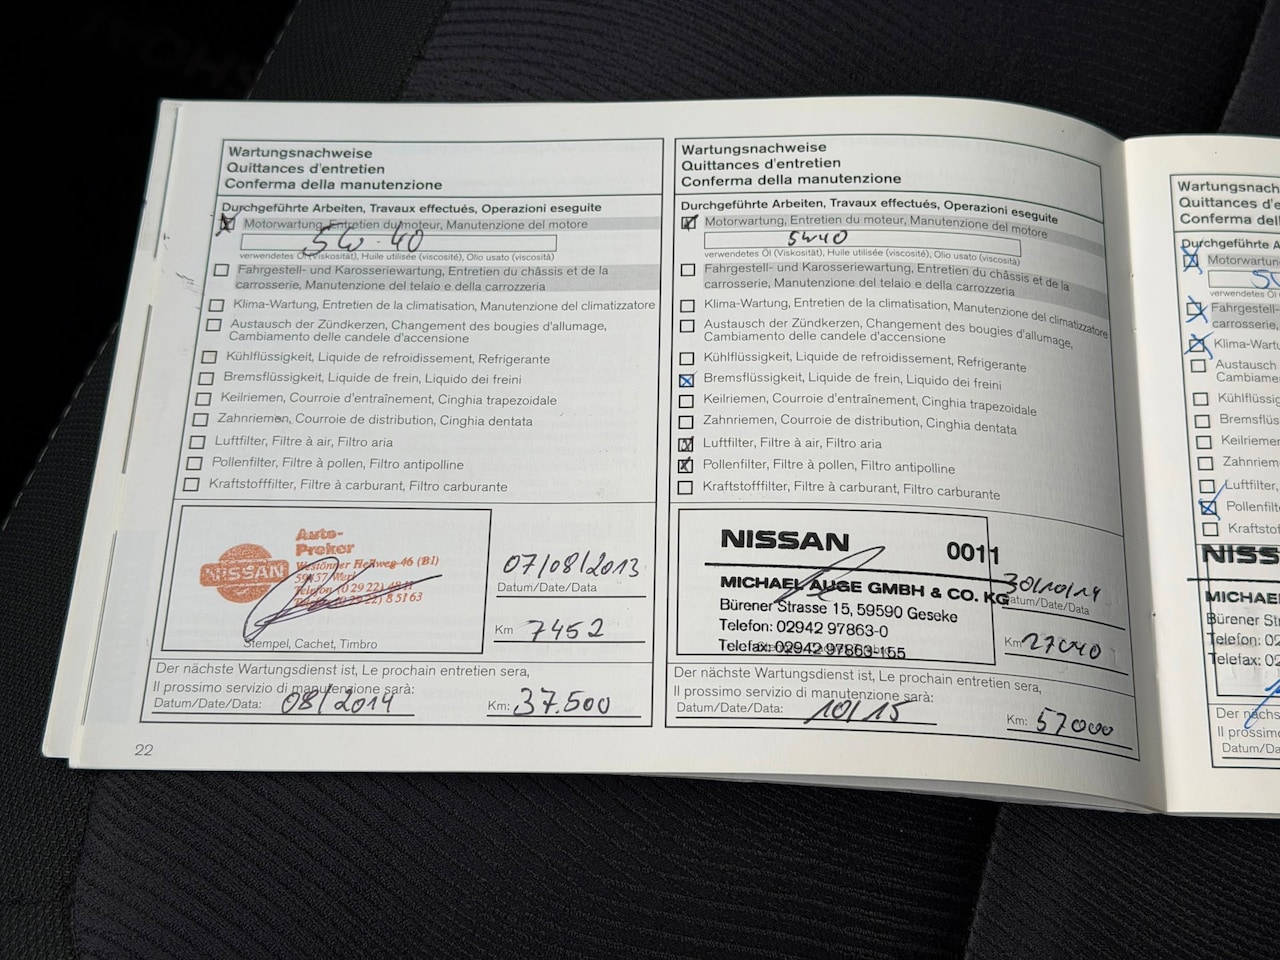 Wartungsnachweise
Quittances d'entretien
Conferma della manutenzione
Durchgeführte Arbeiten, Travaux effectués, Operazioni eseguite
Motorwartung, Entretien du moteur, Manutenzione del motore
5W-40
verwendetes Öl (Viskosität), Huile utilisée (viscosité), Olio usato (viscosità)
Fahrgestell- und Karosseriewartung, Entretien du châssis et de la
carrosserie, Manutenzione del telaio e della carrozzeria
Klima-Wartung, Entretien de la climatisation, Manutenzione del climatizzatore
Austausch der Zündkerzen, Changement des bougies d'allumage,
Cambiamento delle candele d'accensione
Kühlflüssigkeit, Liquide de refroidissement, Refrigerante
Bremsflüssigkeit, Liquide de frein, Liquido dei freini
Keilriemen, Courroie d'entraînement, Cinghia trapezoidale
Zahnriemen, Courroie de distribution, Cinghia dentata
Luftfilter, Filtre à air, Filtro aria
Pollenfilter, Filtre à pollen, Filtro antipolline
Kraftstofffilter, Filtre à carburant, Filtro carburante
NISSAN
Auto-
Westönner Hellweg 46 (B1)
59457 Werl
Telefon (0 29 22)
8 51 63
Stempel, Cachet, Timbro
07/08/2013
Datum/Date/Data
Km 7452
Der nächste Wartungsdienst ist, Le prochain entretien sera,
Il prossimo servizio di manutenzione sarà:
Datum/Date/Data: 08/2014 Km: 37.500
22
Wartungsnachweise
Quittances d'entretien
Conferma della manutenzione
Durchgeführte Arbeiten, Travaux effectués, Operazioni eseguite
Motorwartung, Entretien du moteur, Manutenzione del motore
5W40
verwendetes Öl (Viskosität), Huile utilisée (viscosité), Olio usato (viscosità)
Fahrgestell- und Karosseriewartung, Entretien du châssis et de la
carrosserie, Manutenzione del telaio e della carrozzeria
Klima-Wartung, Entretien de la climatisation, Manutenzione del climatizzatore
Austausch der Zündkerzen, Changement des bougies d'allumage,
Cambiamento delle candele d'accensione
Kühlflüssigkeit, Liquide de refroidissement, Refrigerante
Bremsflüssigkeit, Liquide de frein, Liquido dei freini
Keilriemen, Courroie d'entraînement, Cinghia trapezoidale
Zahnriemen, Courroie de distribution, Cinghia dentata
Luftfilter, Filtre à air, Filtro aria
Pollenfilter, Filtre à pollen, Filtro antipolline
Kraftstofffilter, Filtre à carburant, Filtro carburante
NISSAN 0011
MICHAEL AUGE GMBH & CO. KG
Bürener Strasse 15, 59590 Geseke
Telefon: 02942 97863-0
Telefax: 02942 97863-155
30/10/14
Datum/Date/Data
Km 27040
Der nächste Wartungsdienst ist, Le prochain entretien sera,
Il prossimo servizio di manutenzione sarà:
Datum/Date/Data: 10/15 Km: 57000
Wartungsnach
Quittances d'e
Conferma del
Durchgeführte A
Motorwartung
verwendetes Öl
Fahrgestell-
carrosserie,
Klima-Wartu
Austausch
Cambiame
Kühlflüssig
Bremsflüs
Keilriemen
Zahnriem
Luftfilter,
Pollenfilt
Kraftstof
NISS
MICHAEL
Bürener Str
Telefon: 02
Telefax: 02
Der nächs
Il prossimo
Datum/Date